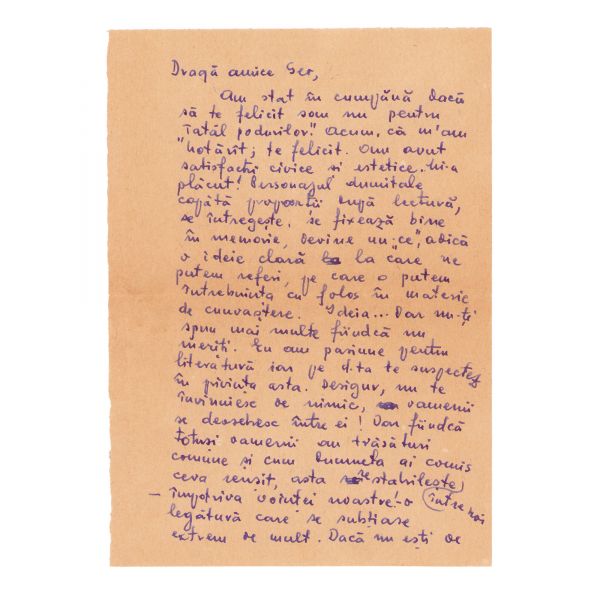 Dragă amice Geo,
Am stat în cumpănă dacă
să te felicit sau nu pentru
"Tatăl podurilor." Acum, că m'am
hotărît, te felicit. Am avut
satisfacții civice și estetice. Mi-a
plăcut! Personajul dumitale
capătă proporții după lectură,
se întregește, se fixează bine
în memorie, devine un "ce", adică
o ideie clară la care ne
putem referi, pe care o putem
întrebuința cu folos în materie
de cunoaștere. Ideia... Dar nu-ți
spun mai multe fiindcă nu
meriți. Eu am pasiune pentru
literatură iar pe d-ta te suspectez
în privința asta. Desigur, nu te
învinuiesc de nimic, oamenii
se deosebesc între ei! Dar fiindcă
totuși oamenii au trăsături
comune și cum Dumneta ai comis
ceva reușit, asta restabilește
— împotriva voinței noastre! - o între noi
legătură care se subțiase
extrem de mult. Dacă nu ești de